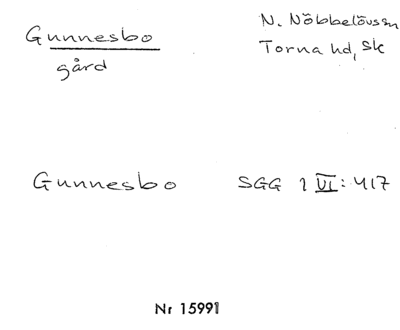 Gunnesbo
gård
N. Nöbbelövssn
Torna hd, Sk
Gunnesbo SGG 1 VI: 417
Nr 15991